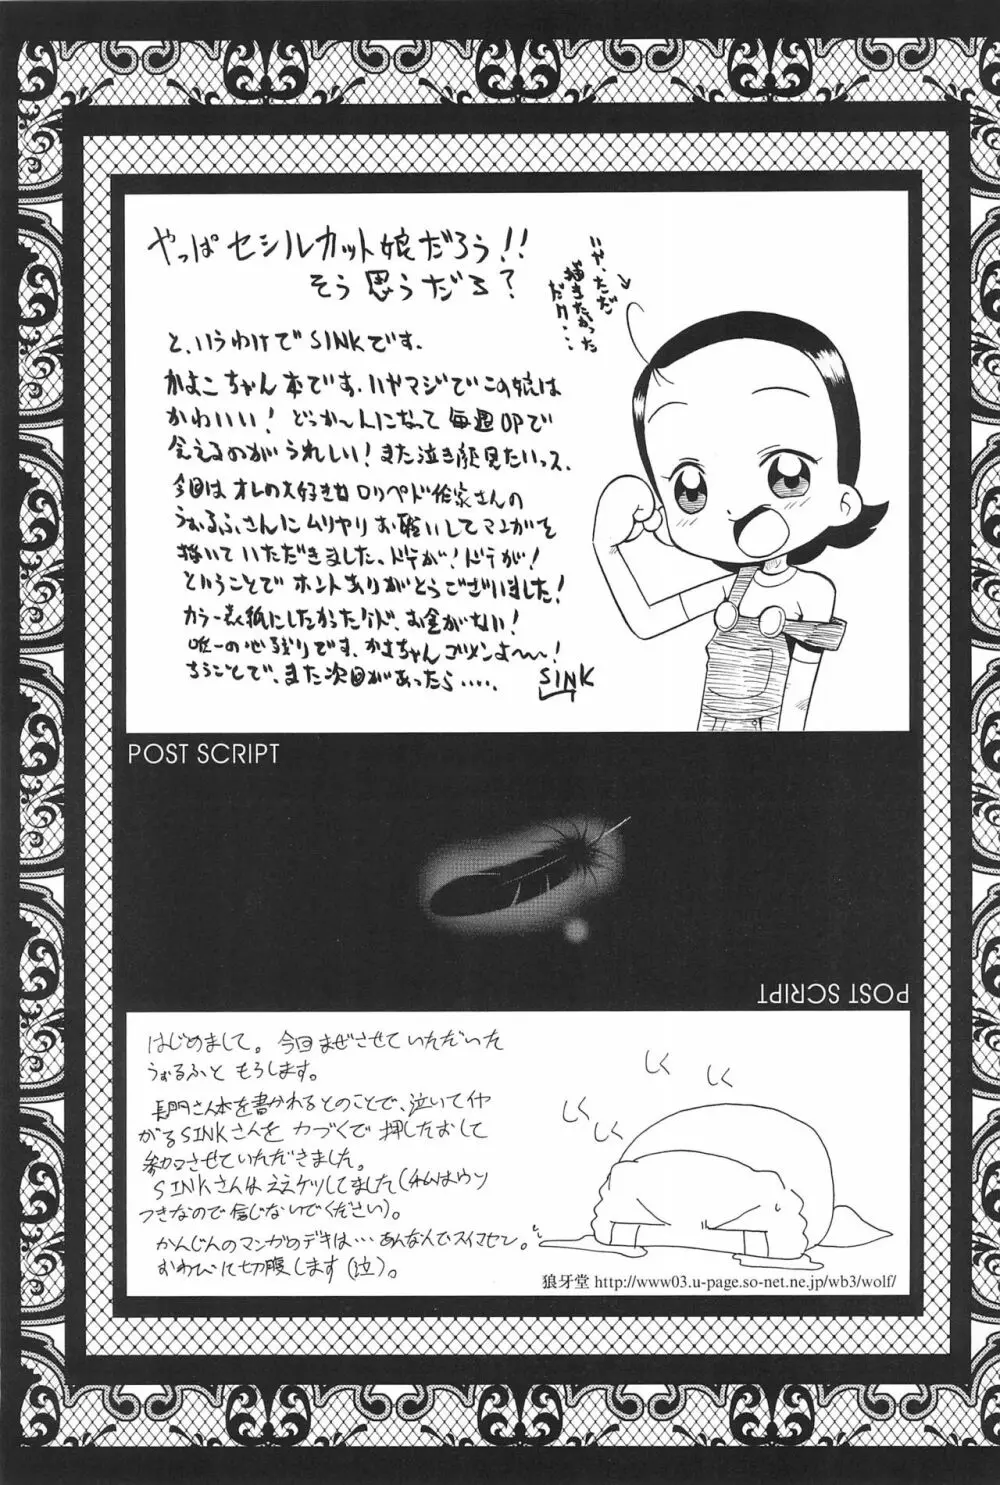 やっぱセシルカット娘だろう!!
そう思うだろ?
いや、ただ
描きたかった
だけ・・
と、いうわけでSINKです。
かよこちゃん本です、いやマジでこの娘は
かわいい!どっか〜んになって毎週OPで
会えるのがうれしい!また泣き顔見たいっス、
今回はオレの大好きなロリペド作家さんの
うぉるふさんにムリヤリお願いしてマンガを
描いていただきました、ドテが!ドテが!
ということでホントありがとうございました!
カラー表紙にしたかったけど、お金がない!
唯一の心残りです、かよちゃんゴメンよ〜〜!
ちうことで、また次回があったら・・・・・
SINK
POST SCRIPT
POST SCRIPT
はじめまして。今回まぜさせていただいた
うぉるふともうします。
長門さん本を書かれるとのことで、泣いてイヤ
がるSINKさんを力づくで押したおして
参加させていただきました。
SINKさんはええケツしてました(私はウソ
つきなので信じないでください)。
かんじんのマンガのデキは…あんなんでスイマセン。
おわびに切腹します(泣)。
しく
しく
しく
しく
狼牙堂